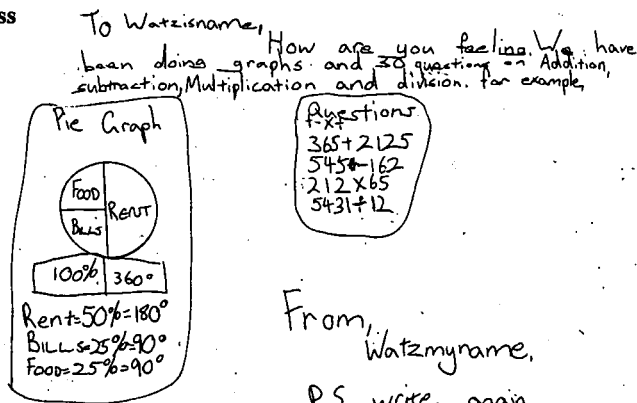 ss
To Watzisname,
How are you feeling. We have
been doing graphs and 30 questions on Addition,
subtraction, Multiplication and division. for example,
Pie Graph
FOOD
RENT
BILLS
100% 360°
Rent=50%=180°
BILLS=25%=90°
FOOD=25%=90°
Questions
365+2125
545-162
212X65
5431÷12
From,
Watzmyname,
P.S. write again